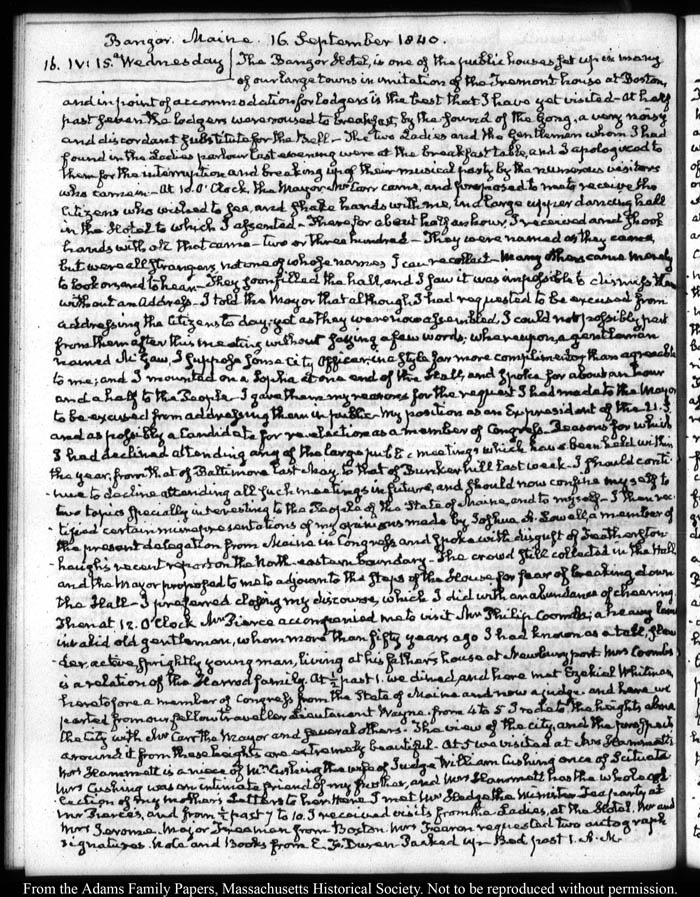 Bangor. Maine. 16. September 1840.
16. IV: 15. Wednesday | The Bangor Hotel, is one of the public houses set up in many
of our large towns in imitation of the Tremont house at Boston,
and in point of accommodation for lodgers is the best that I have yet visited - At half
past seven the lodgers were roused to breakfast, by the sound of the Gong, a very noisy
and discordant substitute for the Bell - The two Ladies and the Gentleman whom I had
found in the Ladies parlour last evening were at the breakfast table, and I apologized to
them for the interruption and breaking up of their musical party by the numerous visitors
who came in - At 10. O'Clock, the Mayor Mr Carr came, and proposed to me to receive the
Citizens who wished to see, and shake hands with me, in a large upper dancing hall
in the Hotel to which I assented - There for about half an hour, I received and shook
hands with all that came - two or three hundred - They were named as they came,
but were all strangers, not one of whose names I can recollect - Many others came merely
to look on and to hear - They soon filled the hall, and I saw it was impossible to dismiss them
without an Address - I told the Mayor that although, I had requested to be excused from
addressing the Citizens to day, yet as they were now assembled, I could not possibly part
from them after this meeting without saying a few words, whereupon, a gentleman
named McGaw, I suppose some City Officer, in a style far more complimentary than agreeable
to me; and I mounted on a Sopha at one end of the Hall, and spoke for about an hour
and a half to the People - I gave them my reasons for the request I had made to the Mayor
to be excused from addressing them in public - My position as an Ex president of the U.S.
and as possibly a Candidate for re-election as a member of Congress. Reasons for which
I had declined attending any of the large public meetings which have been held within
the year, from that of Baltimore last May, to that of Bunker hill last week - I should conti-
-nue to decline attending all such meetings in future, and should now confine myself to
two topics specially interesting to the People of the State of Maine, and to myself - I then rec-
-tified certain misrepresentations of my opinions made by Joshua A. Lowell, a member of
the present delegation from Maine in Congress and spoke with disgust of Featherston-
-haugh's recent report on the North-eastern boundary - The crowd still collected in the Hall
and the Mayor proposed to me to adjourn to the steps of the House for fear of breaking down
the Hall - I preferred closing my discourse, which I did with an abundance of cheering.
Then at 12. O'Clock Mr Pierce accompanied me to visit Mr Philip Coombs; a heavy
invalid old gentleman, whom more than fifty years ago I had known as a tall, slen-
-der, active, sprightly young man, living at his father's house at Newburyport Mrs Coombs
is a relation of the Harrod family. At ½ past 1. we dined, and here met Ezekiel Whitman
heretofore a member of Congress from the State of Maine and now a judge - and here we
parted from our fellow traveller Lieutenant Wayne. from 4 to 5 I rode to the heights above
the City with Mr Carr the Mayor and several others. The view of the city, and the prospects
around it from these heights are extremely beautiful. At 5 we visited at Mrs Hammatt's
Mrs Hammatt is a niece of Mrs Cushing the wife of Judge William Cushing once of Scituate
Mrs Cushing was an intimate friend of my Mother, and Mrs Hammatt has the whole col-
-lection of my mother's Letters to her. Here I met Mr Hedge the Minister Tea party at
Mr Pierce's, and from ½ past 7 to 10. I received visits from the Ladies, at the Hotel. Mr and
Mrs Jerome. Major Freeman from Boston. Mrs requested two autograph
signatures. Note and Books from E. Packed up - Bed past 1. A.M.
From the Adams Family Papers, Massachusetts Historical Society. Not to be reproduced without permission.